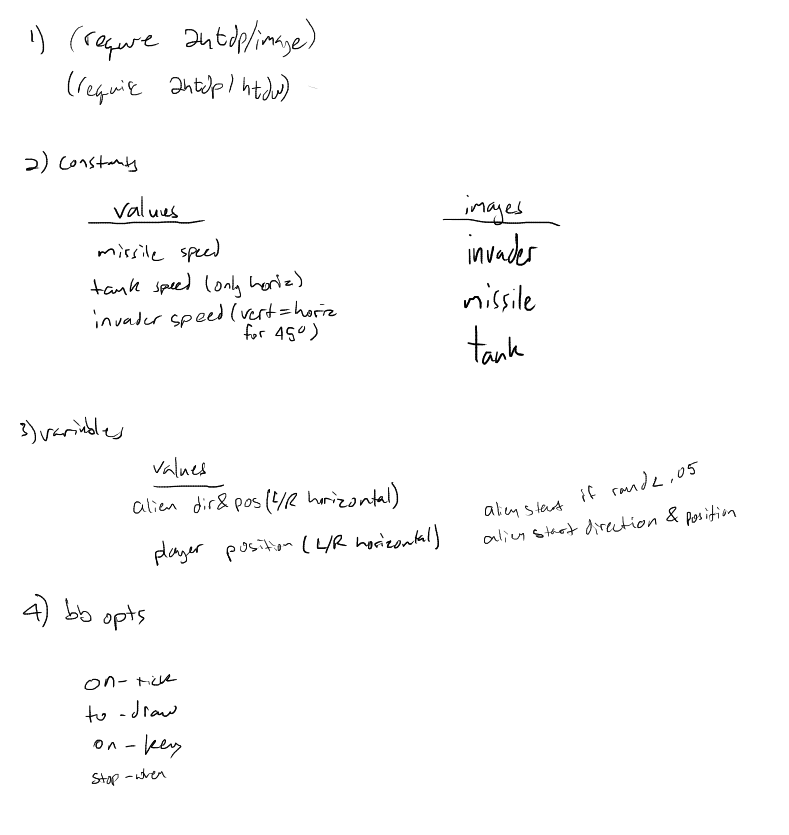 1) (require 2htdp/image)
(require 2htdp/htdw)
2) constants
values
missile speed
tank speed (only horiz)
invader speed (vert=horiz
for 45°)
images
invader
missile
tank
3) variables
values
alien dir & pos (L/R horizontal)
player position (L/R horizontal)
alien start if rand < .05
alien start direction & position
4) bb opts
on-tick
to-draw
on-key
stop-when